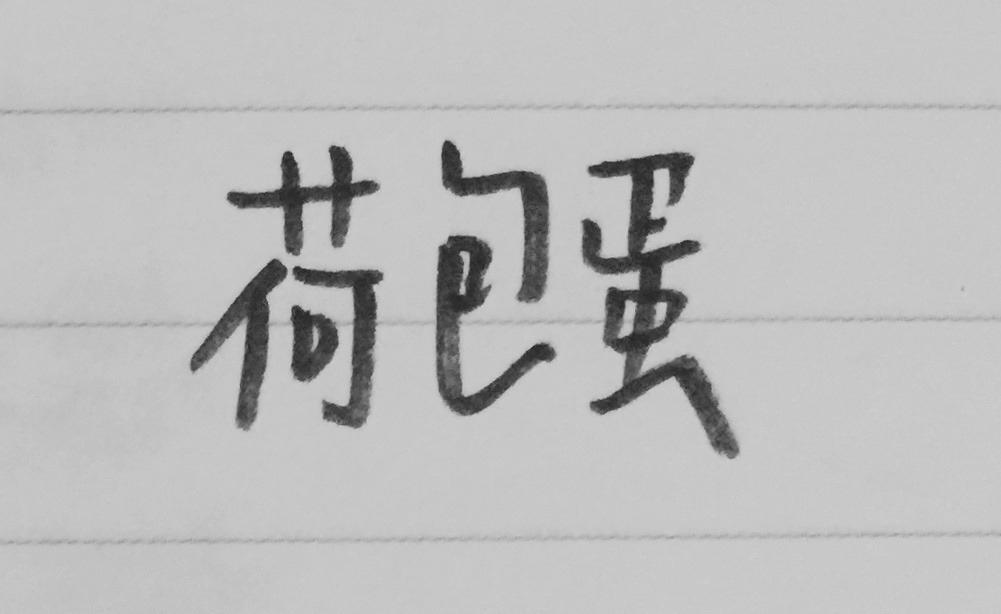 荷包蛋